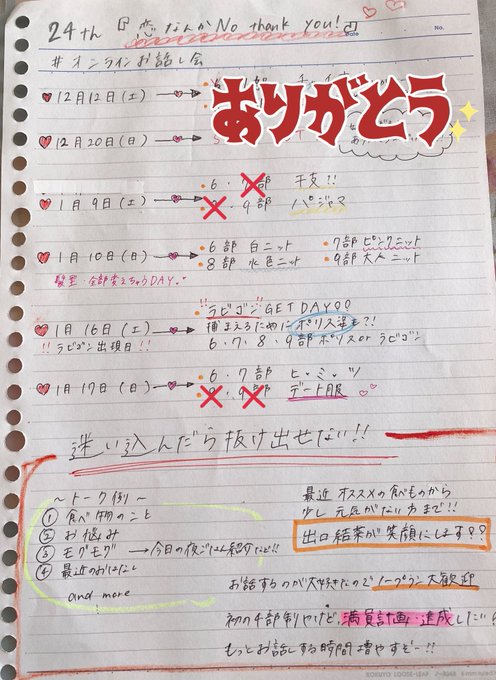 24th 『恋なんかNo thank you!』
Date
No.
#オンラインお話し会
12月12日(土)
ありがとう
12月20日(日)
1月9日(土)
・6・7部 干支!!
9部 パジャマ
1月10日(日)
・6部 白ニット ・7部 ピンクニット
・8部 水色ニット ・9部 大人ニット
髪型・全部変えちゃうDAY
1月16日(土)
!!ラビゴン出現日!!
・ラビゴンGET DAY
捕まえるためにポリス姿も?!
6・7・8・9部 ポリス or ラビゴン
1月17日(日)
・6・7部 ヒ・ミ・ツ
8・9部 デート服
迷い込んだら抜け出せない!!
〜トーク例〜
① 食べ物のこと
② お悩み
③ モグモグ → 今日の夜ごはん紹介など!!
④ 最近のおはなし
and more
最近 オススメの食べものから
少し 元気がない方まで!!
出口結菜が笑顔にします??
お話するのが大好きなのでノープラン大歓迎
初の4部制やけど、満員計画・達成したい!
もっとお話しする時間増やすぞー!!
KOKUYO LOOSE-LEAF